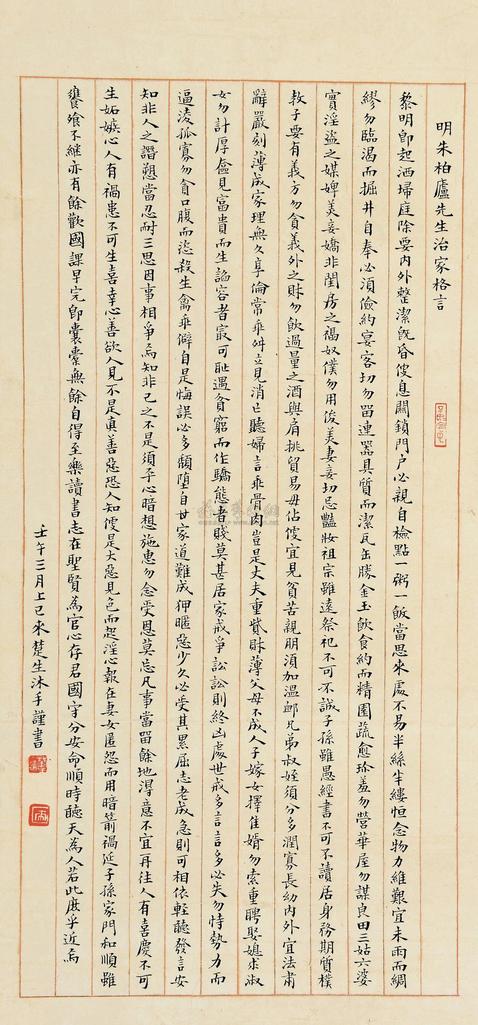 明朱柏廬先生治家格言
黎明即起洒埽庭除要內外整潔既昏便息關鎖門户必親自檢點一粥一飯當思來處不易半絲半縷恒念物力維艱宜未雨而綢
繆勿臨渴而掘井自奉必須儉約宴客切勿畱連器具質而潔瓦缶勝金玉飲食約而精園蔬愈珍羞勿營華屋勿謀良田三姑六婆
實淫盜之媒婢美妾嬌非閨房之福奴僕勿用俊美妻妾切忌豔妝祖宗雖遠祭祀不可不誠子孫雖愚經書不可不讀居身務期質樸
教子要有義方勿貪義外之財勿飲過量之酒與肩挑貿易毋佔便宜見貧苦親朋須加溫卹兄弟叔姪須分多潤寡長幼內外宜法肅
辭嚴刻薄成家理無久享倫常乖舛立見消亡聽婦言乖骨肉豈是丈夫重貲財薄父母不成人子嫁女擇佳婿勿索重聘娶媳求淑
女勿計厚奩見富貴而生諂容者最可恥遇貧窮而作驕態者賤莫甚居家戒爭訟訟則終凶處世戒多言言多必失勿恃勢力而
逼淩孤寡勿貪口腹而恣殺生禽乖僻自是悔誤必多頹墮自甘家道難成狎暱惡少久必受其累屈志老成急則可相依輕聽發言安
知非人之譖愬當忍耐三思因事相爭焉知非己之不是須平心暗想施惠勿念受恩莫忘凡事當畱餘地得意不宜再往人有喜慶不可
生妬嫉心人有禍患不可生喜幸心善欲人見不是真善惡恐人知便是大惡見色而起淫心報在妻女匿怨而用暗箭禍延子孫家門和順雖
饔飧不繼亦有餘歡國課早完即囊橐無餘自得至樂讀書志在聖賢為官心存君國守分安命順時聽天為人若此庶乎近焉
壬午三月上巳來楚生沐手謹書